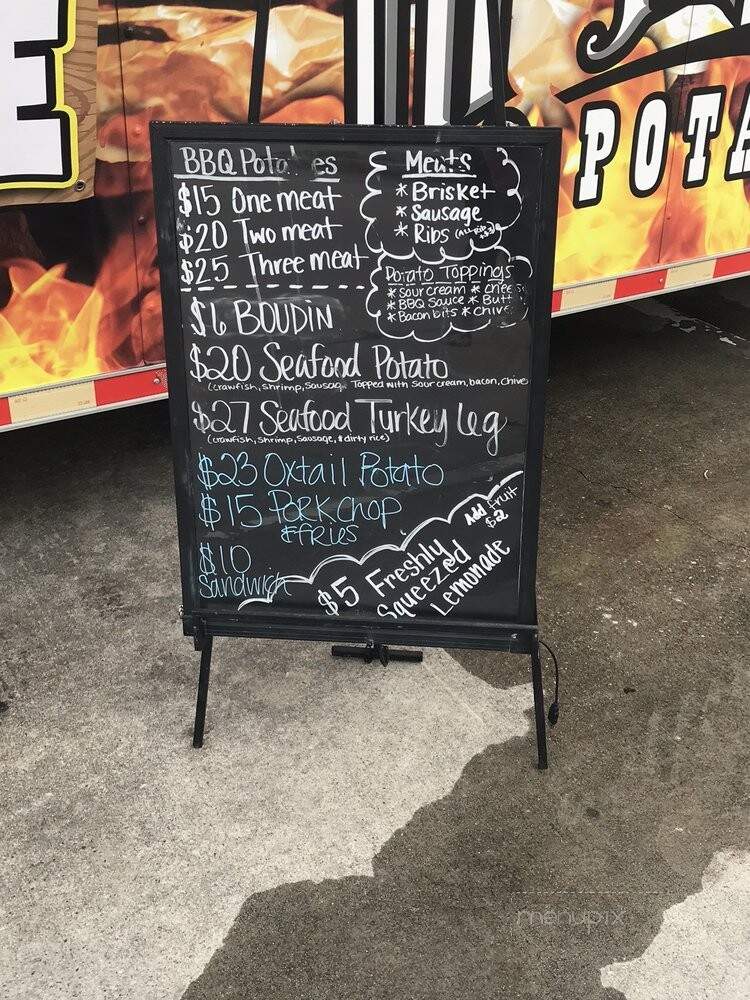 E
POTA
BBQ Potatoes
$15 One meat
$20 Two meat
$25 Three meat
Meats
* Brisket
* Sausage
* Ribs
Potato Toppings
* Sour cream * chees
* BBQ Sauce * Butt
* Bacon bits * chive
$6 BOUDIN
$20 Seafood Potato
(crawfish, shrimp, sausag Topped with sour cream, bacon, chive
$27 Seafood Turkey Leg
(crawfish, shrimp, sausage, & dirty rice)
$23 Oxtail Potato
$15 PORK chop
& fries
$10
Sandwich
$5 Freshly
Squeezed
Lemonade
Add fruit
$2
menupix